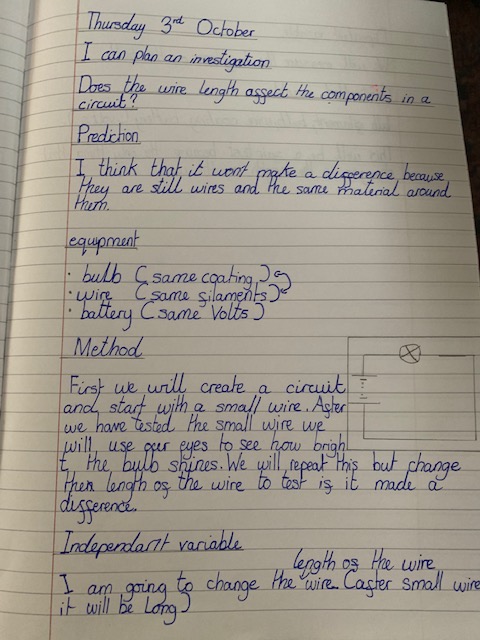 Thursday 3rd October
I can plan an investigation
Does the wire length affect the components in a
circuit?
Prediction
I think that it won't make a difference because
they are still wires and the same material around
them.
equipment
· bulb (same coating)
· wire (same filaments)
· battery (same Volts)
Method
First we will create a circuit
and start with a small wire. After
we have tested the small wire we
will use our eyes to see how brigh
t the bulb shines. We will repeat this but change
then length of the wire to test if it made a
difference.
Independant variable
length of the wire
I am going to change the wire (after small wire
it will be long)